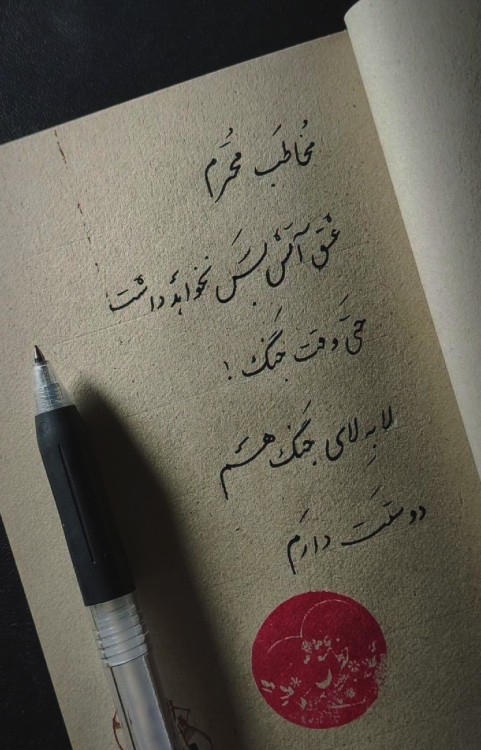 مُخاطَب مُحَرَّم
عشق آتش بَس نخواهد داشت
حتَّی وقت جَنگ !
لا بهِ لای جَنگ هستَم
دوستَت دارَم